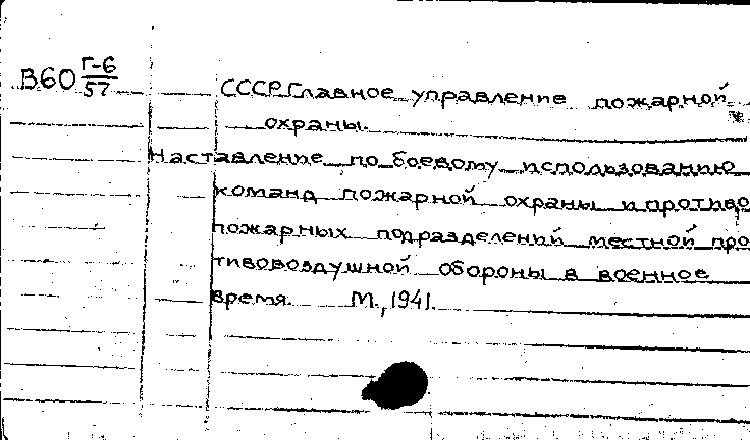 В60 Г-6/57
СССР. Главное управление пожарной
охраны.
Наставление по боевому использованию
команд пожарной охраны и противо
пожарных подразделений местной про
тивовоздушной обороны в военное
время. М., 1941.